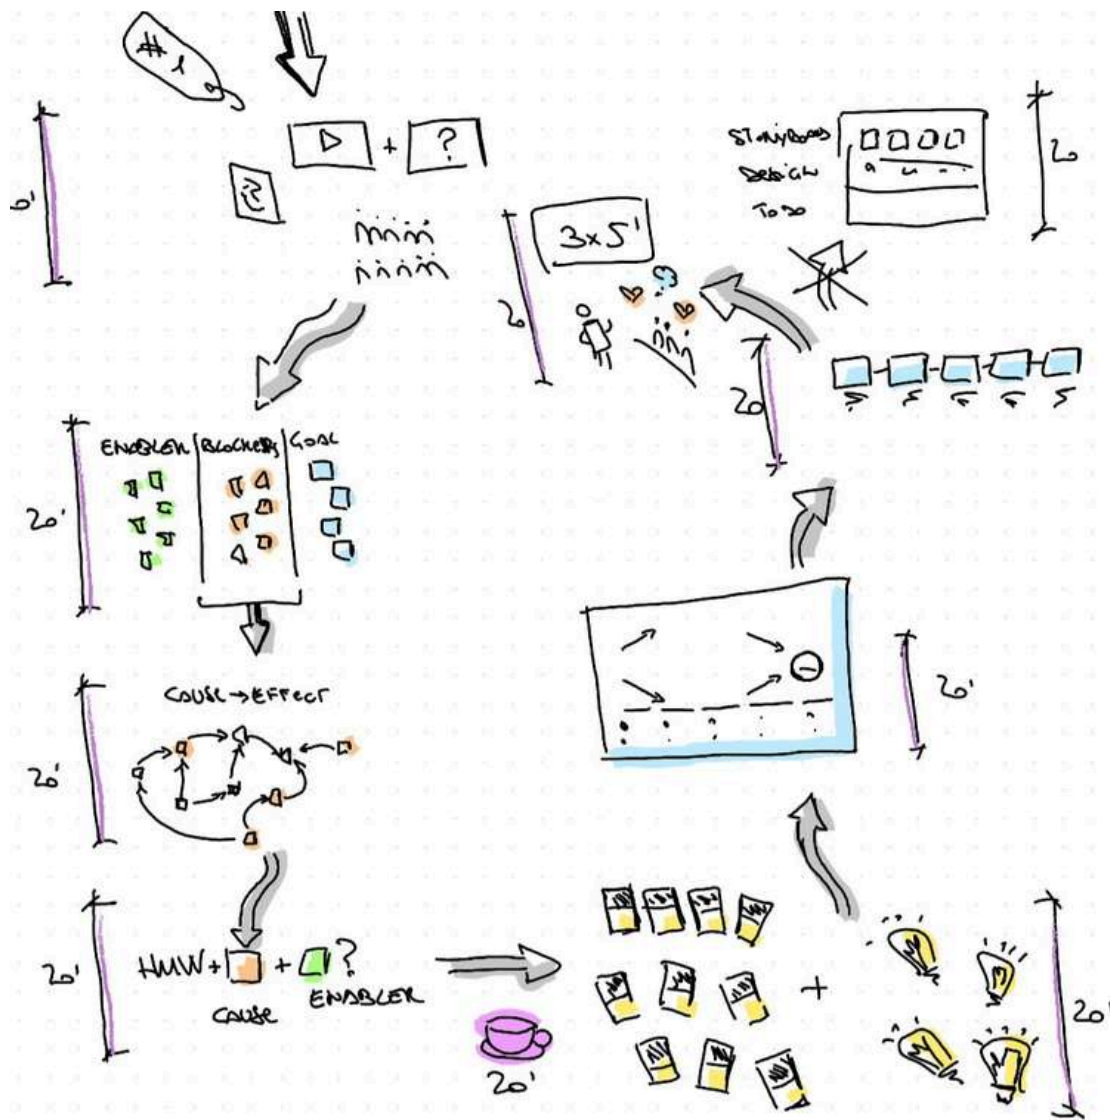 #1
?
3x5'
STORYBOARD
DESIGN
TO DO
20
20
ENABLER
BLOCKERS
GOAL
20'
CAUSE → EFFECT
20'
20'
20'
HMW + + ?
CAUSE
ENABLER
20'
+
20'